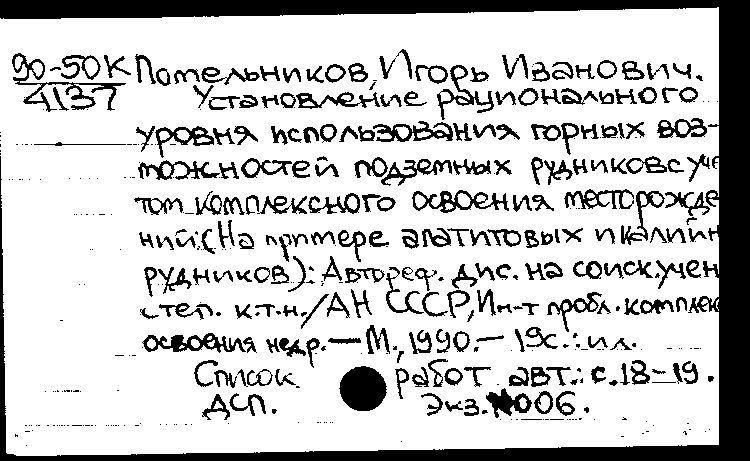 90-50К Помельников, Игорь Иванович.
4137 Установление рационального
уровня использования горных воз-
можностей подземных рудников с уче
том комплексного освоения месторожде
ний: (На примере апатитовых и калийн
рудников): Автореф. дис. на соиск. учен
степ. к.т.н./АН СССР, Ин-т пробл. комплек
освоения недр. — М., 1990. — 19с.: ил.
Список работ авт.: с.18-19.
ДСП. Экз. №006.